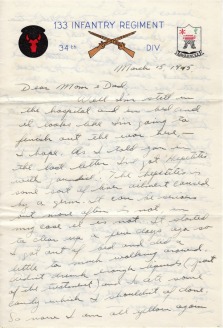 133 INFANTRY REGIMENT
34th DIV.
March 15, 1945
Dear Mom & Dad,
Well I'm still in
the hospital and in bed and
it looks like I'm going to
finish out the war here,
I hope. As I told you in
the last letter I've got hepatitis
with jaundice. The hepatitis is
some sort of liver ailment caused
by a germ. It can be serious
but more often is not. In
my case it is not. It started
to clear up a few days ago so
I got out of bed and did a
little too much walking around,
of the treatment) and ate some
candy which I shouldn't of done.
So now I am all yellow again